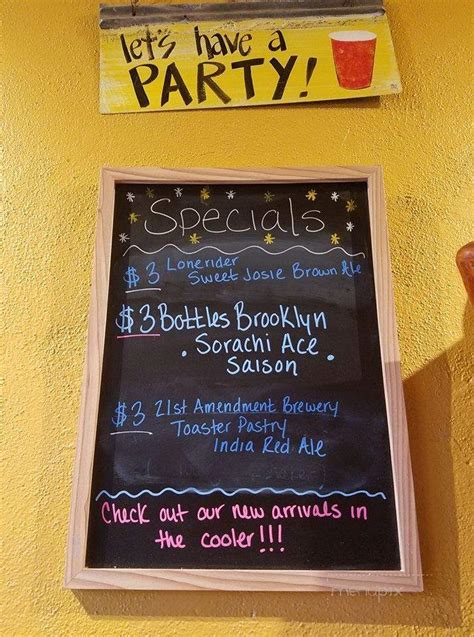 let's have a
PARTY!
Specials
$3 Lonerider
Sweet Josie Brown Ale
$3 Bottles Brooklyn
. Sorachi Ace .
Saison
$3 21st Amendment Brewery
Toaster Pastry
India Red Ale
Check out our new arrivals in
the cooler!!!
menupix